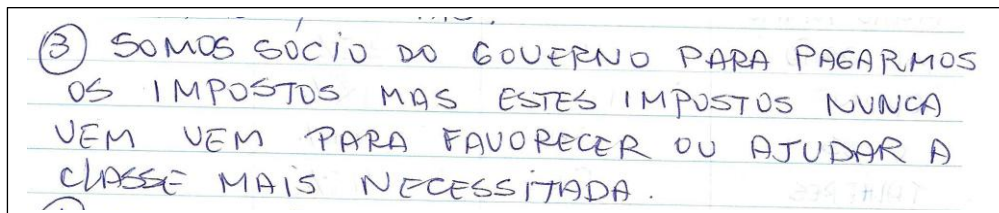 ③ SOMOS SÓCIO DO GOVERNO PARA PAGARMOS
OS IMPOSTOS MAS ESTES IMPOSTOS NUNCA
VEM VEM PARA FAVORECER OU AJUDAR A
CLASSE MAIS NECESSITADA.